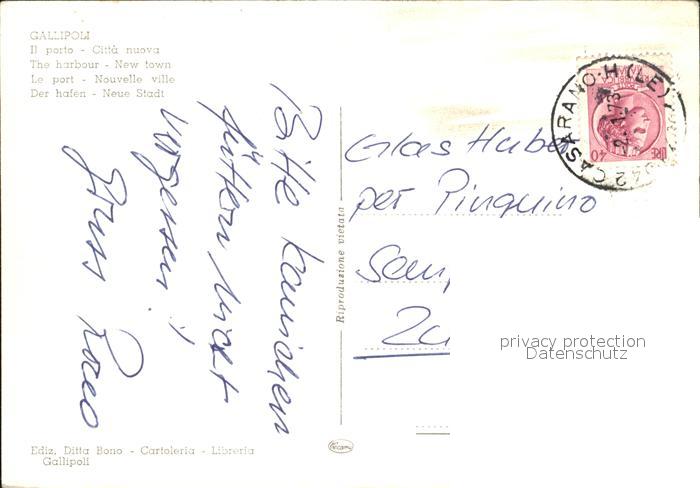 GALLIPOLI
Il porto - Città nuova
The harbour - New town
Le port - Nouvelle ville
Der hafen - Neue Stadt
Bitte Kaninchen
füttern nicht
vergessen!,
Gruss Rocco
Riproduzione vietata
Glas Huber
per Pinguino
Sam
Zu
CASARANO·H (LE)
LIRE 40
privacy protection
Datenschutz
Ediz. Ditta Bono - Cartoleria - Libreria
Gallipoli